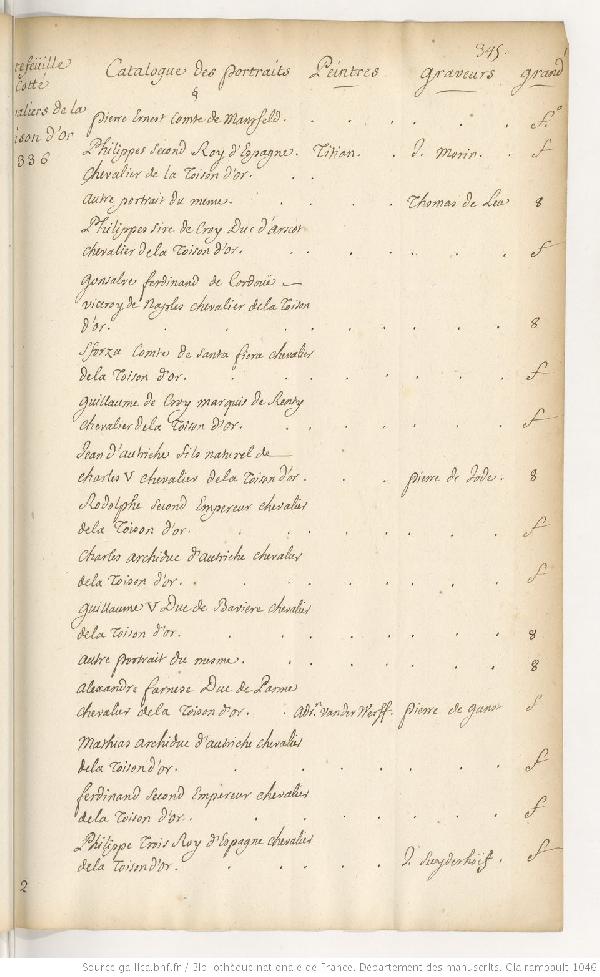 345.
Catalogue des portraits Peintres Graveurs grand.
&
pierre Ernest Comte de Mansfeld. f.º
Philippes second Roy d'Espagne. Titien. J. Morin. f
Chevalier de la Toison d'or.
autre portrait du meme. Thomas de Leu 8
Philippes sire de Croy Duc d'Arscot
chevalier dela Toison d'or. f
gonsalve ferdinand de Cordoüe
viceroy de Naples chevalier dela Toison
d'or. 8
Sforza Comte de Santa fiora chevalier
dela Toison d'or. f
guillaume de Croy marquis de Renty
chevalier dela Toison d'or. f
Jean d'autriche fils naturel de
charles V chevalier dela Toison d'or. pierre de Jode. 8
Rodolphe second Empereur chevalier
dela Toison d'or. f
Charles archiduc d'autriche chevalier
dela Toison d'or. f
guillaume V Duc de Baviere chevalier
dela Toison d'or. 8
autre portrait du mesme. 8
alexandre farnese Duc de Parme
chevalier dela Toison d'or. Adr.n vander Werff. pierre de gunst f
Mathias archiduc d'autriche chevalier
dela Toison d'or. f
ferdinand second Empereur chevalier
dela Toison d'or. f
Philippe Trois Roy d'Espagne chevalier
dela Toison d'or. J. Suyderhoif. f
tefeüille
Cotté
valiers de la
ison d'or
336
2
Source gallica.bnf.fr / Bibliothèque nationale de France. Département des manuscrits. Clairambault 1046